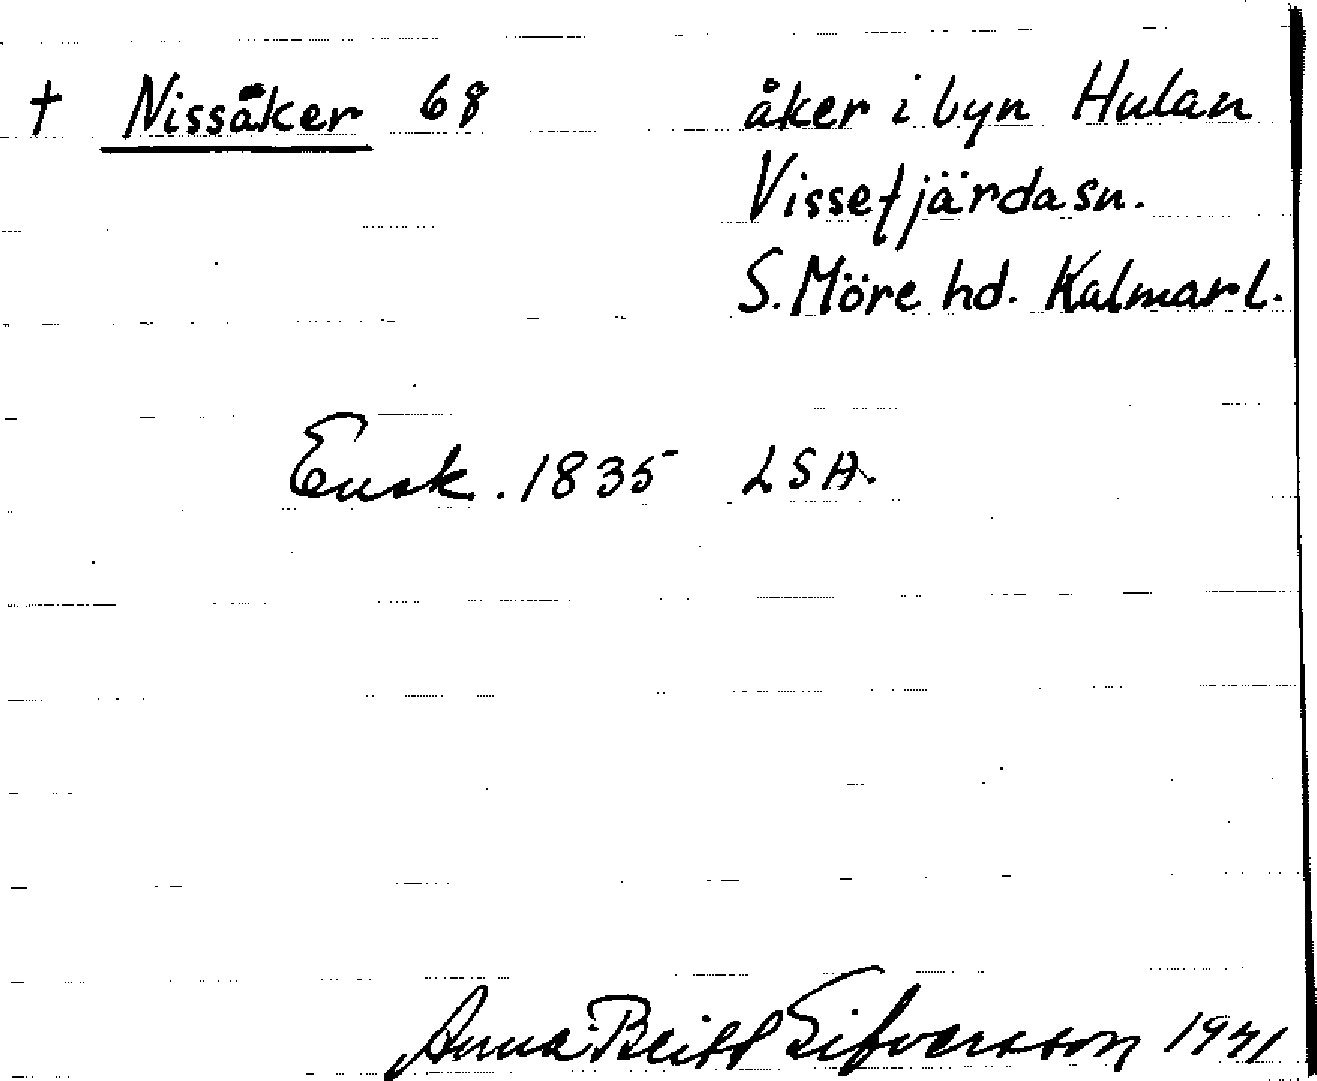 † Nissåker 68 åker i byn Hulan
Vissefjärda sn.
S. Möre hd. Kalmar l.
Ensk. 1835 LSA.
Anna-Britt Sifvarsson 1941